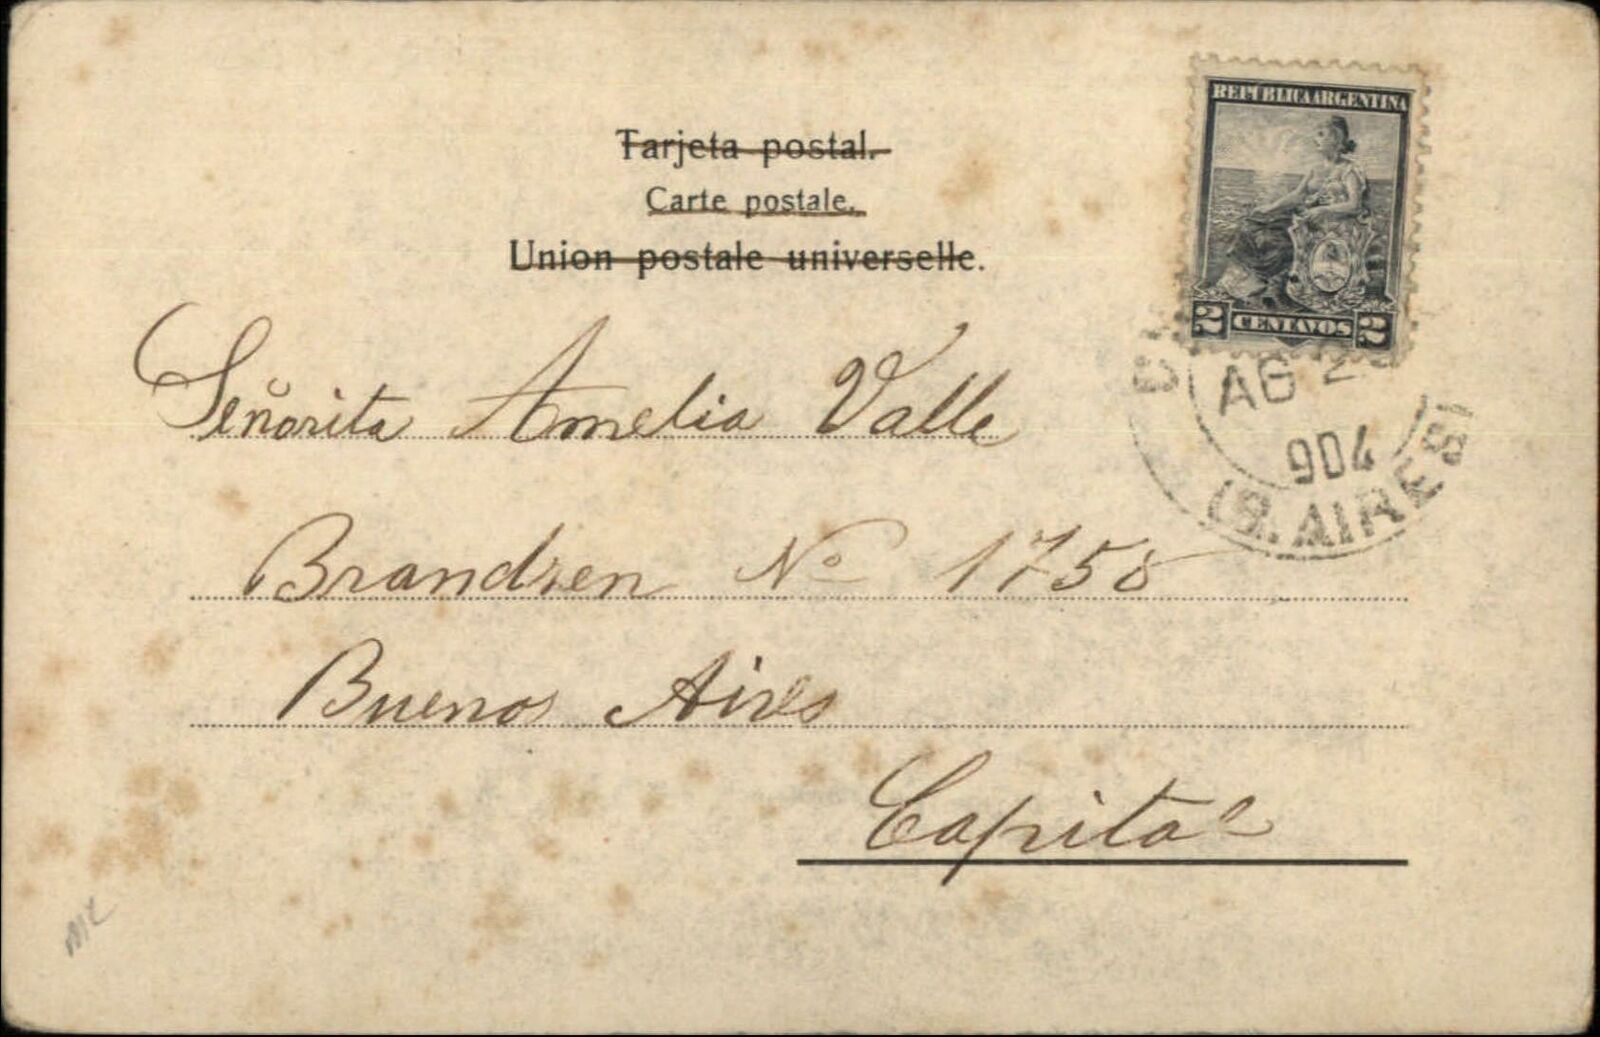 REPUBLICA ARGENTINA
2 CENTAVOS 2
Tarjeta postal.
Carte postale.
Union postale universelle.
AG 2
904
B. AIRES
Señorita Amelia Valle
Brandzen No 1758
Buenos Aires
Capital